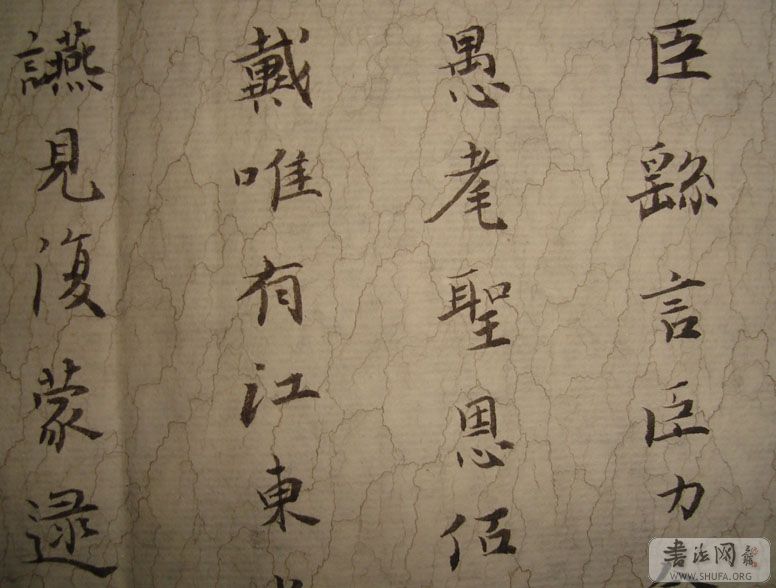 臣繇言臣力
愚耄聖恩低
戴唯有江東
讌見復蒙逮
書法网
WWW.SHUFA.ORG